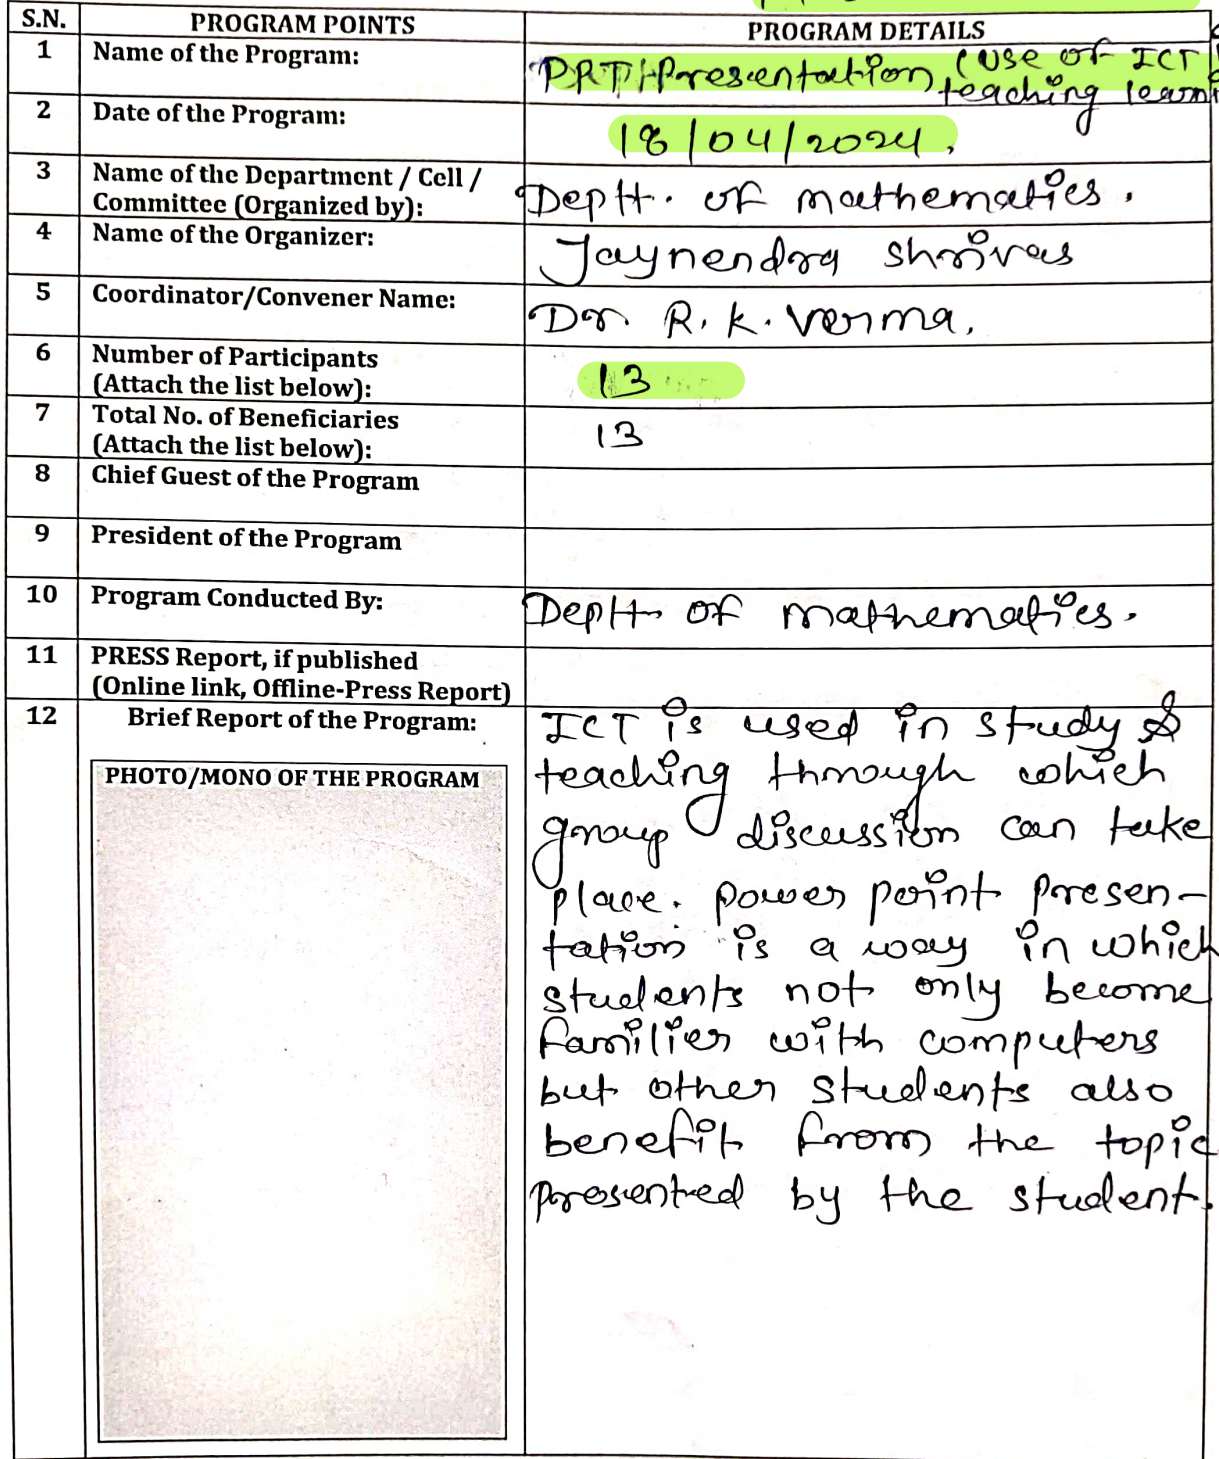 S.N. PROGRAM POINTS PROGRAM DETAILS
1 Name of the Program: Presentation (Use of ICT
teaching learn
2 Date of the Program: 18/04/2024,
3 Name of the Department / Cell / Deptt. of mathematics.
Committee (Organized by):
4 Name of the Organizer: Jaynendra Shrivas
5 Coordinator/Convener Name: Dr. R. K. Verma.
6 Number of Participants 13
(Attach the list below):
7 Total No. of Beneficiaries 13
(Attach the list below):
8 Chief Guest of the Program
9 President of the Program
10 Program Conducted By: Deptt. of mathematics.
11 PRESS Report, if published
(Online link, Offline-Press Report)
12 Brief Report of the Program:
PHOTO/MONO OF THE PROGRAM
ICT is used in study &
teaching through which
group discussion can take
place. power point presen-
tation is a way in which
students not only become
familier with computers
but other students also
benefit from the topic
presented by the student.